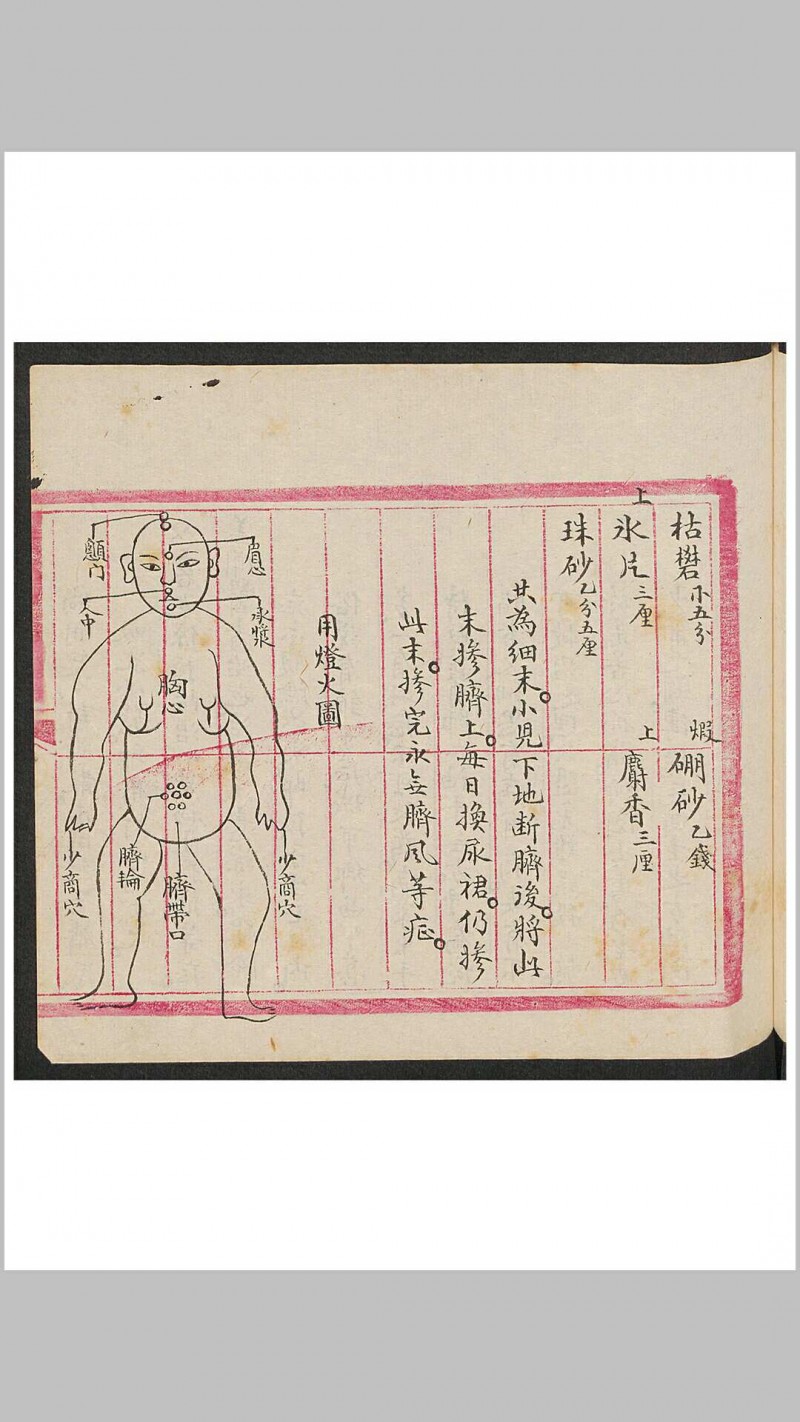 枯礬 五分
煅硼砂 乙錢
上氷片 三厘
上麝香 三厘
珠砂 乙分五厘
共為細末。小児下地断臍後。將此
末摻臍上。每日換尿裙。仍摻
此末。摻完永無臍風等症。
用燈火圖
眉心
承漿
顖门
人中
胸心
少商穴
臍帶口
臍輪
少商穴